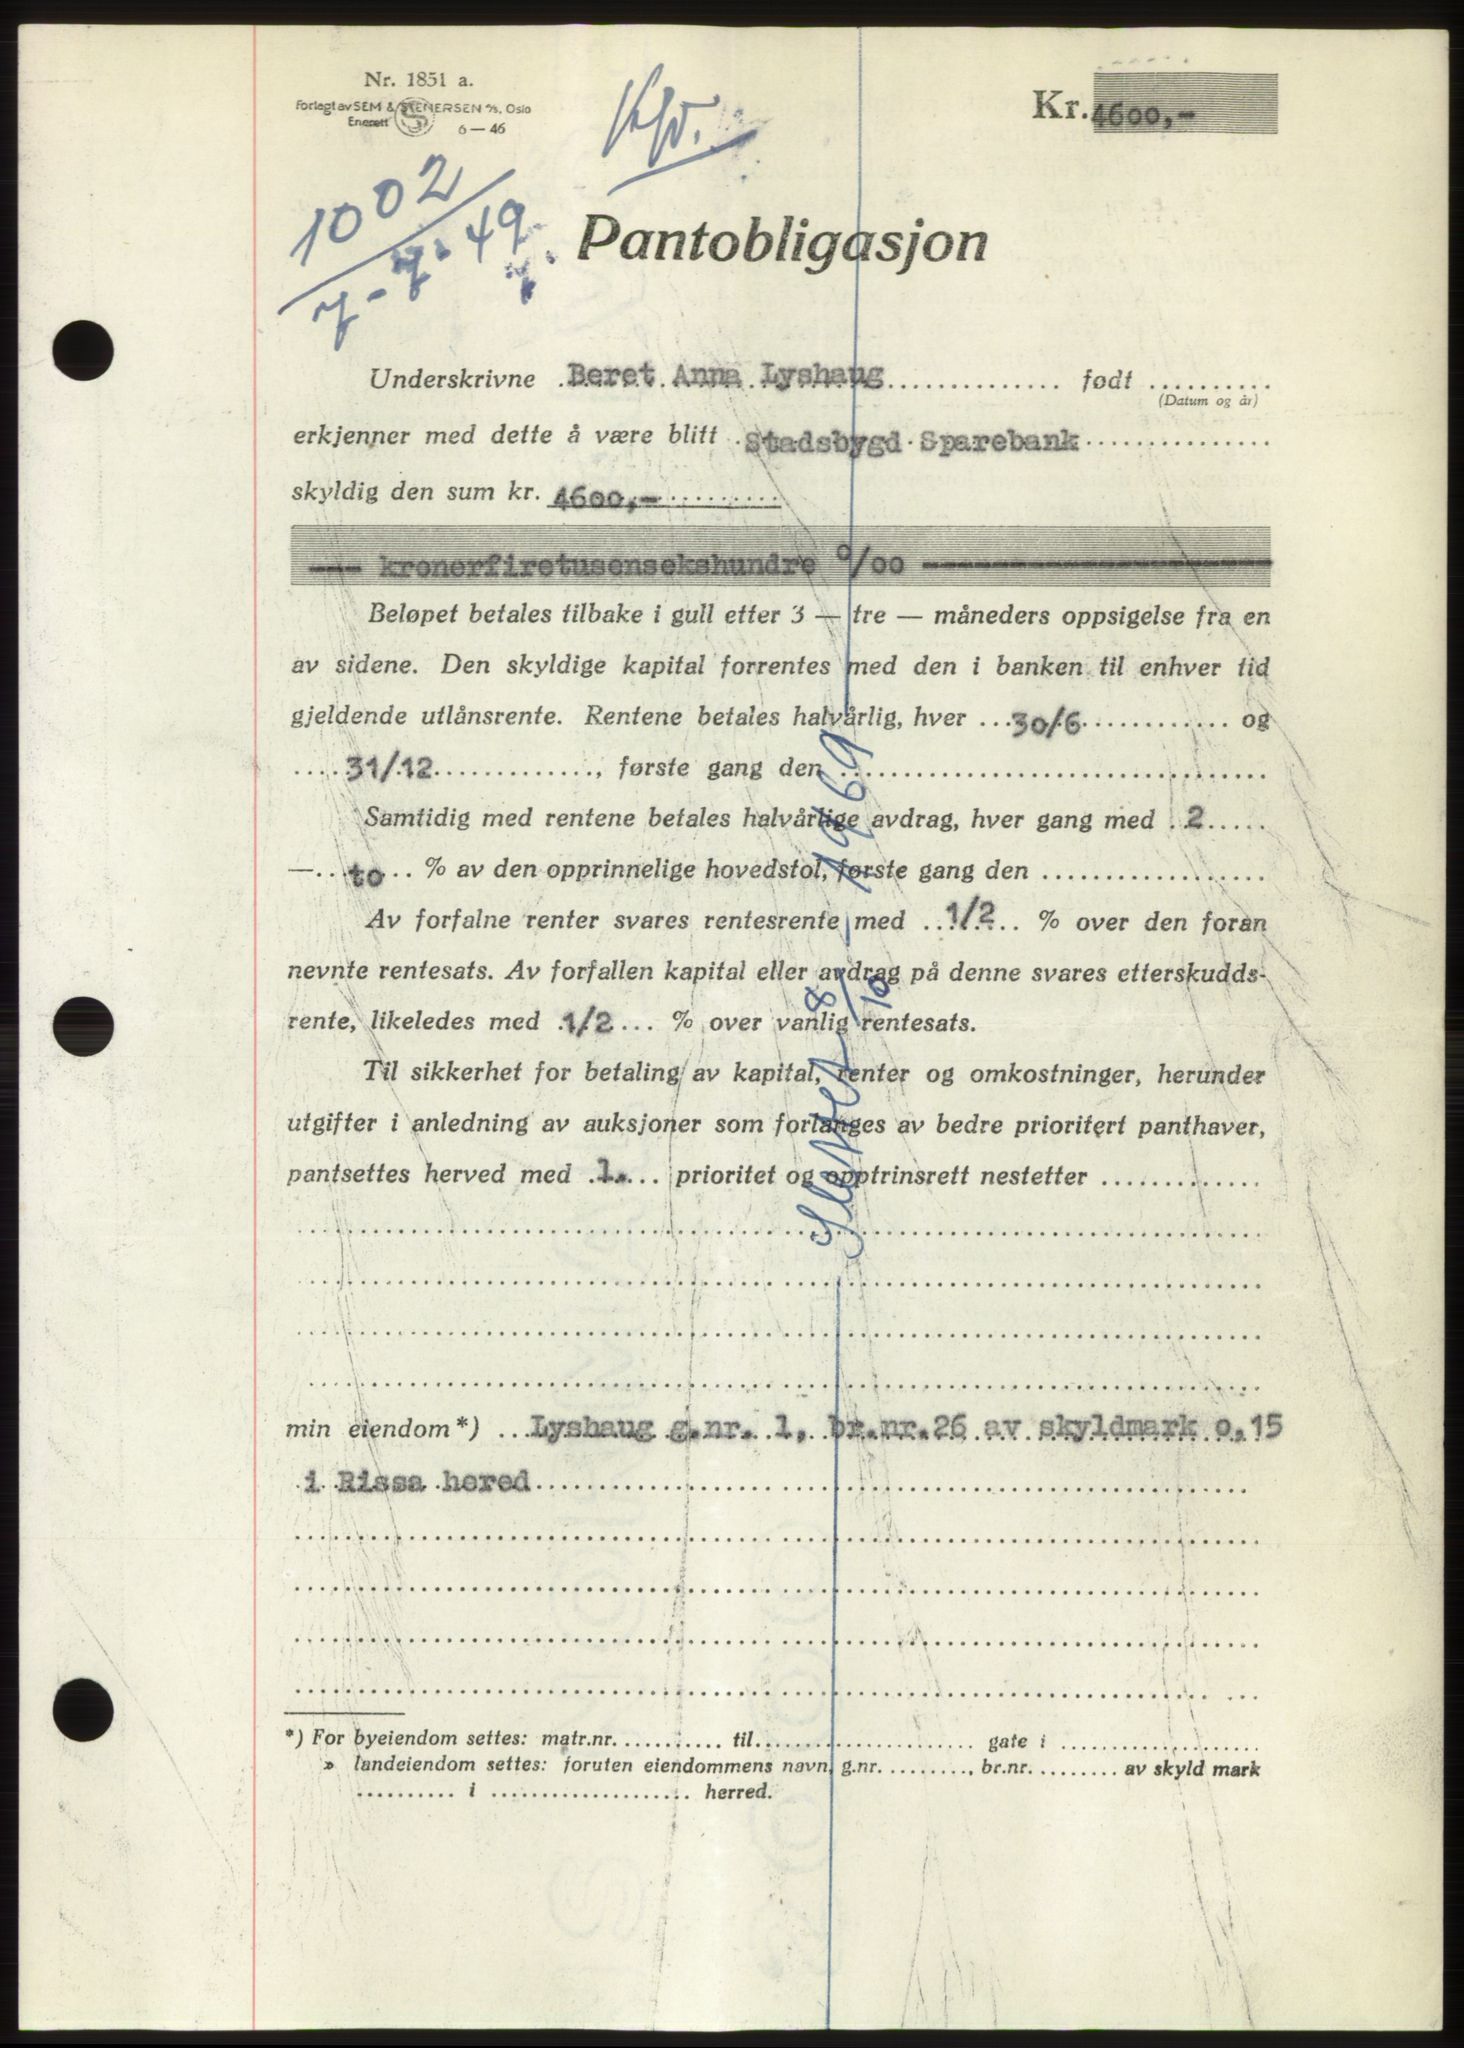 Nr. 1851 a.
Forlagt av SEM & STENERSEN A/S, Oslo
Enerett
6 — 46
Kr. 4600,-
1002
7-7-49
Pantobligasjon
Underskrivne Beret Anna Lyshaug født
(Datum og år)
erkjenner med dette å være blitt Stadsbygd Sparebank
skyldig den sum kr. 4600,-
kronerfiretusensekshundre 0/00
Beløpet betales tilbake i gull etter 3 — tre — måneders oppsigelse fra en
av sidene. Den skyldige kapital forrentes med den i banken til enhver tid
gjeldende utlånsrente. Rentene betales halvårlig, hver 30/6 og
31/12, første gang den
Samtidig med rentene betales halvårlige avdrag, hver gang med 2
— to % av den opprinnelige hovedstol, første gang den
Av forfalne renter svares rentesrente med 1/2 % over den foran
nevnte rentesats. Av forfallen kapital eller avdrag på denne svares etterskudds-
rente, likeledes med 1/2 % over vanlig rentesats.
Til sikkerhet for betaling av kapital, renter og omkostninger, herunder
utgifter i anledning av auksjoner som forlanges av bedre prioritert panthaver,
pantsettes herved med 1. prioritet og opptrinsrett nestetter
Slettet 8/10 1969
min eiendom*) Lyshaug g.nr. 1, br.nr. 26 av skyldmark o,15
i Rissa hered
*) For byeiendom settes: matr.nr. til gate i
» landeiendom settes: foruten eiendommens navn, g.nr. , br.nr. av skyld mark
i herred.